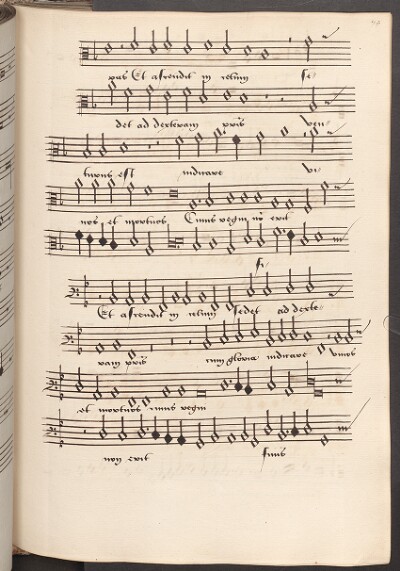 pris Et ascendit in celum se-
det ad dexteram pris ven-
turus est iudicare vi-
nos et mortuos Cuius regni nō erit
fi-
Et ascendit in celum sedet ad dexte-
ram pris cum gloria iudicare vinos
et mortuos cuius regni
non erit finis